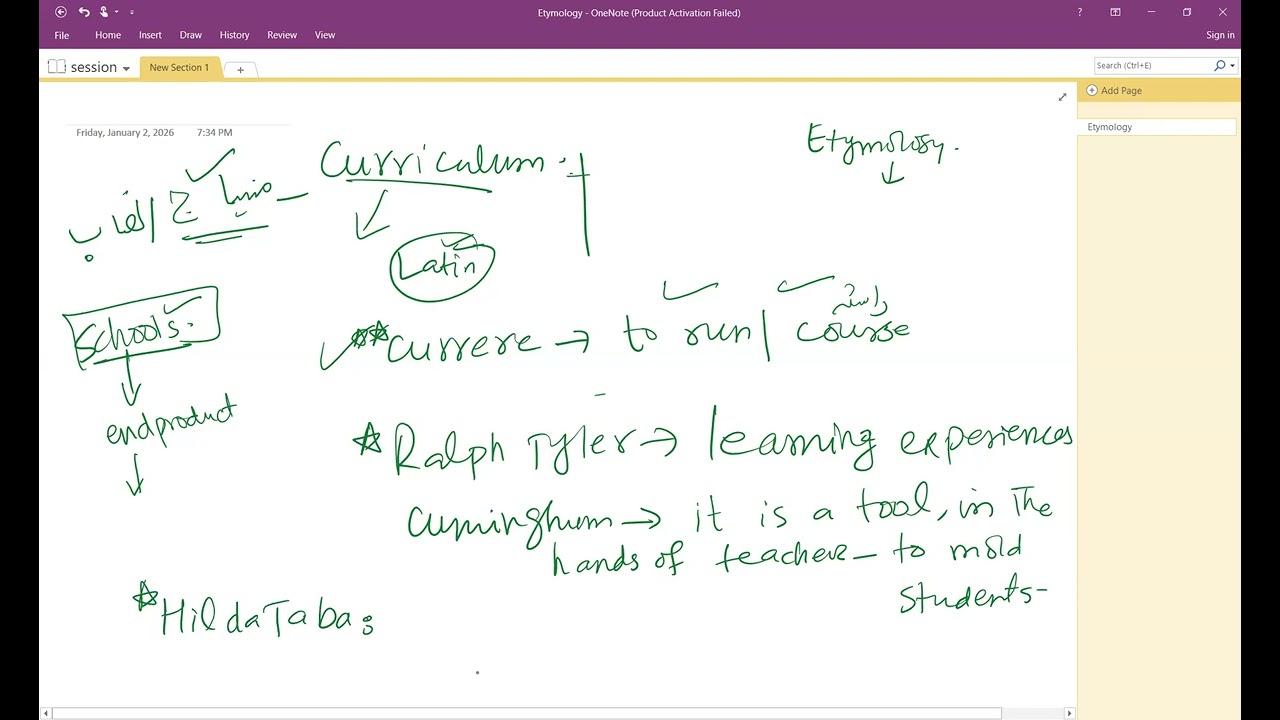 Etymology - OneNote (Product Activation Failed)
File Home Insert Draw History Review View Sign in
session New Section 1 Search (Ctrl+E)
Add Page
Etymology
Friday, January 2, 2026 7:34 PM
Etymology.
Curriculum
Latin
Schools.
endproduct
currere → to run/ course
Ralph Tyler → learning experiences
Cuminghum → it is a tool, in The
hands of teacher - to mold
students-
Hilda Taba: